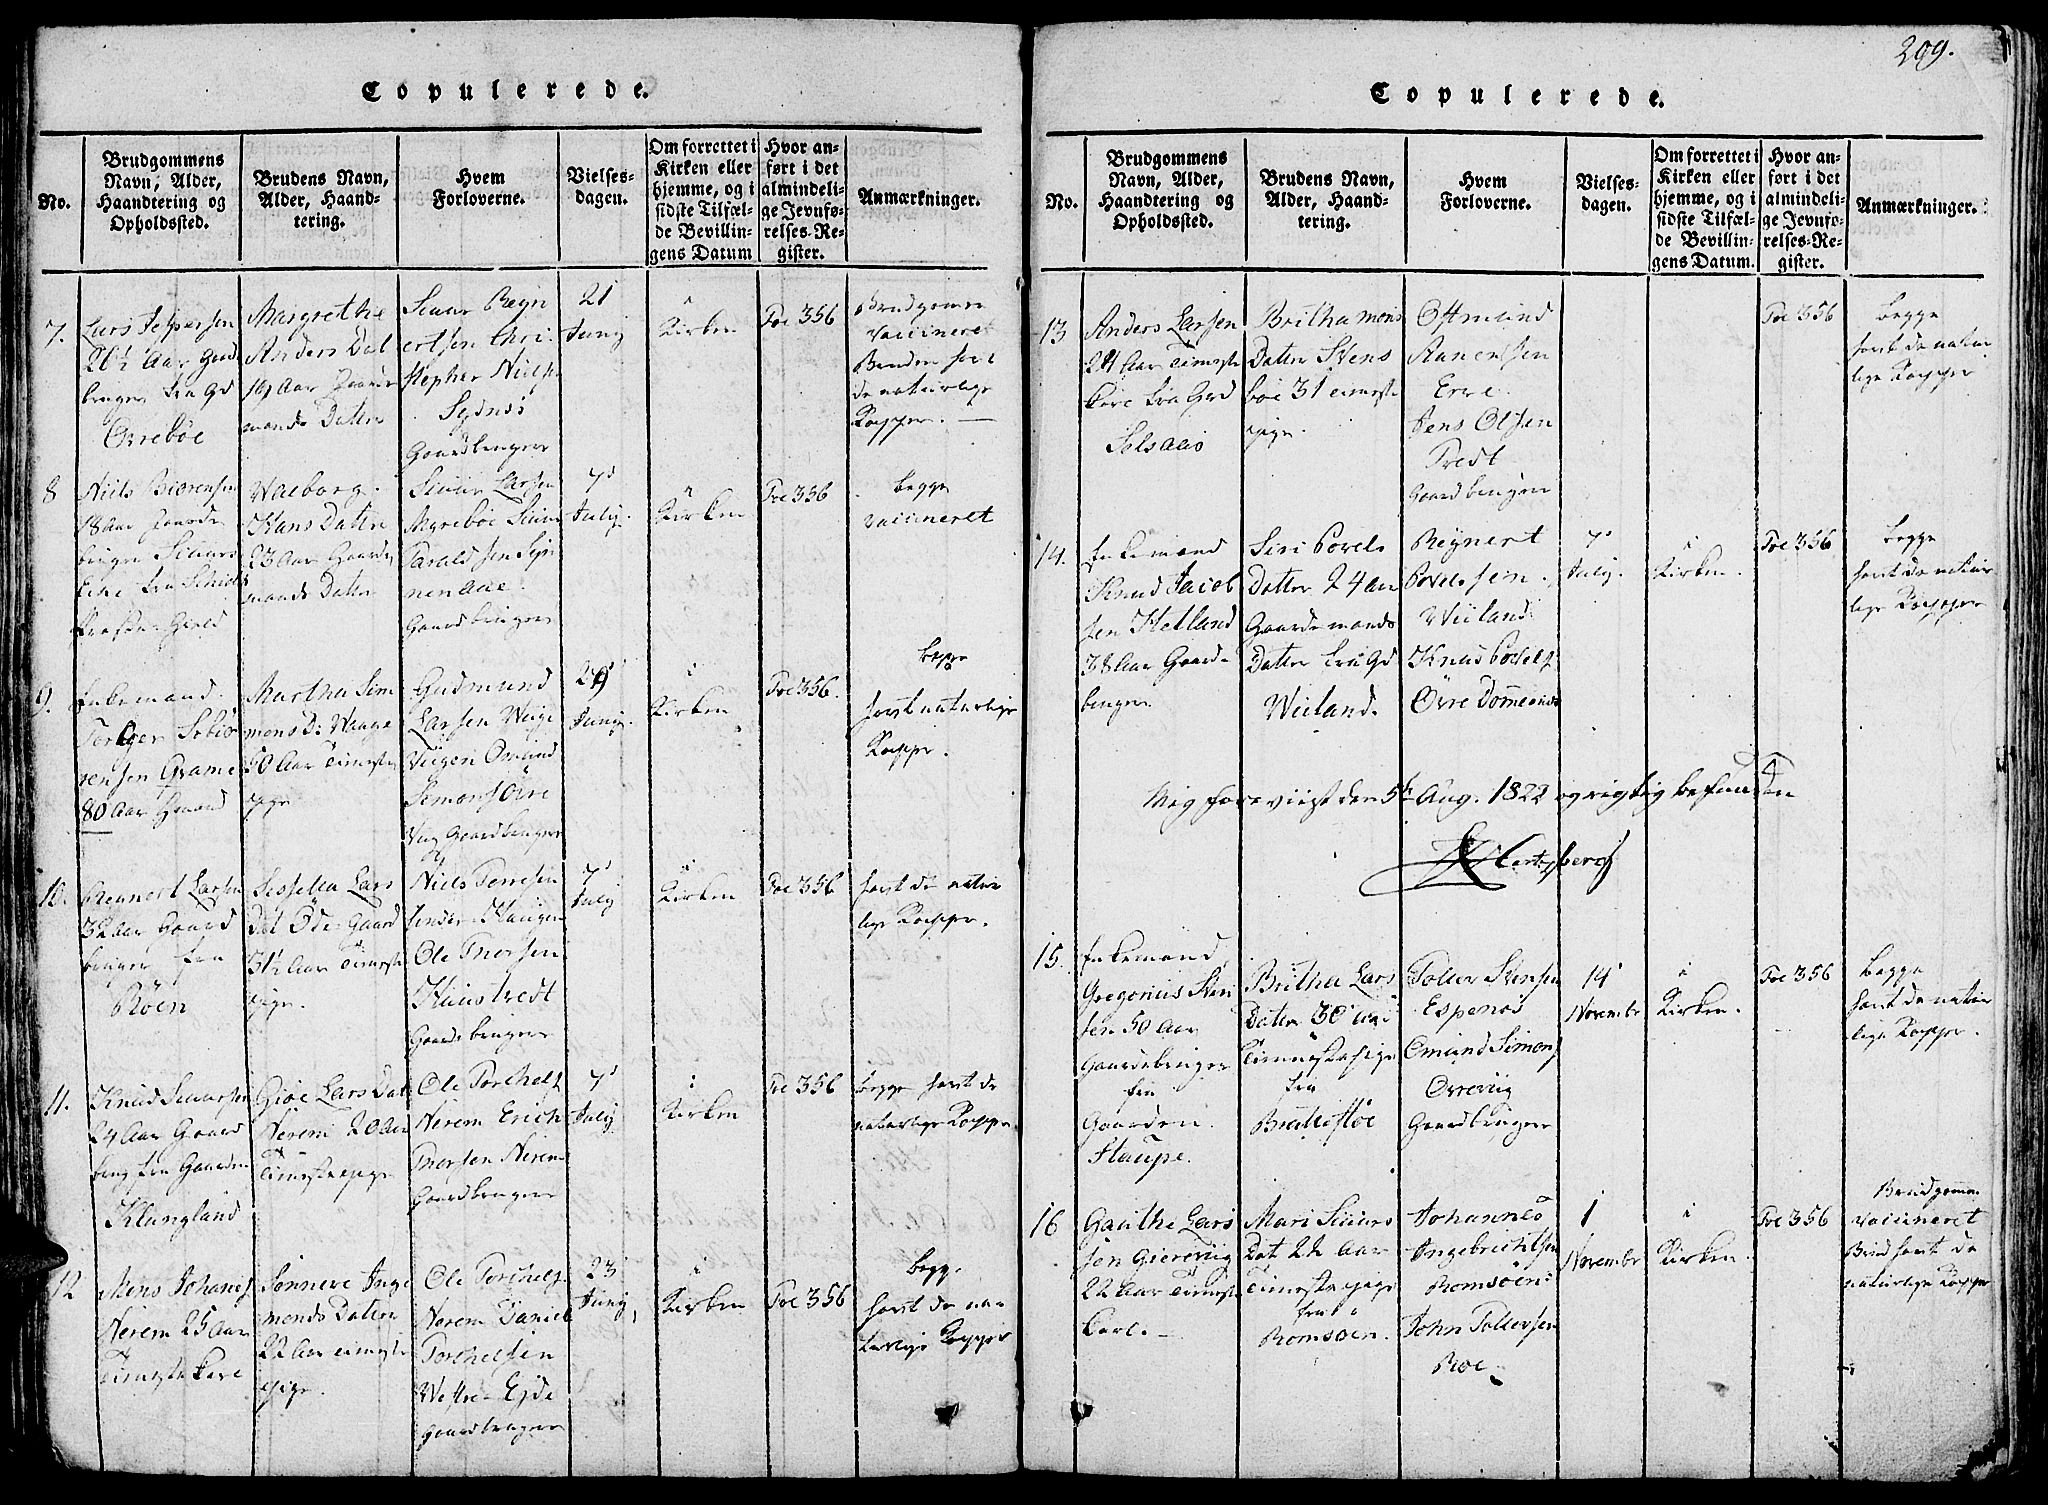 209.
Copulerede.
No.
Brudgommens
Navn, Alder,
Haandtering og
Opholdssted.
Brudens Navn,
Alder, Haand-
tering.
Hvem
Forloverne.
Vielses-
dagen.
Om forrettet i
Kirken eller
hjemme, og i
sidste Tilfæl-
de Bevillin-
gens Datum
Hvor an-
ført i det
almindeli-
ge Jevnfø-
relses-Re-
gister.
Anmærkninger.
7.
Lars Jespersen
26½ Aar Gaard
bruger fra Gd
Orrebøe
Margrethe
Anders Dat
19 Aar Gaard
mands Datter
Siuur Reyn
ertsen Chri
stopher Niels
Sydnes
Gaardbrugere
21
Juny
i
Kirken
Foe 356
Brudgomen
vaccineret
Bruden havt
de naturlige
Kopper. —
8
Niels Biörensen
18 Aar Gaard
bruger
Waeborg
Hans Datter
23 Aar Gaard
mands Datter
Siuur Larsen
Myreböe Siuur
Taraldsen
nen aae
Gaardbrugere
7
July
i
Kirken
Foe 356
begge
vaccineret
9.
Enkemand
Torger
rensen Grame
80 Aar
Martha Sim
mons D: Waage
50 Aar Tieneste
pige
Gudmund
Larsen
Simons Övre
Gaardbrugere
29
Juny
i
Kirken
Foe 356.
begge
havt naturlige
Kopper.
10.
Reynert Larsen
32 Aar Gaard
bruger fra
Röen
Sesselia Lars
Dat Öde-Gaard
31½ Aar Tieneste
pige.
Niels Terresen
Söndre Haugen
Ole Thorsen
Haustvedt
Gaardbrugere
7
July
i
Kirken
Foe 356
havt de natur
lige Kopper.
11.
Knud Siuursen
24 Aar Gaard
brug fra Gaarden
Klungland
Giöe Lars Dat
Nerem 20 Aar
Tienestepige
Ole Torchels
Nerem Erich
Thorsen Nerem
Gaardbrugere
7
July
i
Kirken
Foe 356
begge havt de
naturlige Kopper
12
Mons Johans
Nerem 25 Aar
Tieneste Karl
Sönneve Inge
monds Datter
22 Aar Tieneste
pige.
Ole Torchels
Nerem Daniel
Torchelsen
Westre-Eyde
Gaardbrugere
23
Juny,
i
Kirken
Foe 356
begge
havt de na
turlige Kopper
Copulerede.
No.
Brudgommens
Navn, Alder,
Haandtering og
Opholdssted.
Brudens Navn,
Alder, Haand-
tering.
Hvem
Forloverne.
Vielses-
dagen.
Om forrettet i
Kirken eller
hjemme, og i
sidste Tilfæl-
de Bevillin-
gens Datum.
Hvor an-
ført i det
almindeli-
ge Jevnfø-
relses-Re-
gister.
Anmærkninger.
13
Anders Larsen
24 Aar Tieneste
karl fra Gard
Solsaas
Britha Mons
Datter Stens
böe 31 Tieneste
pige.
Ostmund
Aanensen
Erve
Jens Olsen
Tredt
Gaardbrugere
Foe 356
begge
havt de natur
lige Kopper
14.
Enkemand
Knud Jacob
sen Hetland
38 Aar Gaard-
bruger
Siri Povels
Datter 24 Aar
Gaardmands
Datter fra Gd
Wiiland.
Reynert
Povelssen
Wiiland
Knud Povels
Övre Domesnes
7
July.
i
Kirken.
Foe 356
begge
havt de natur
lige Kopper
Mig foreviist den 5te Aug. 1822 og rigtig befunden
Hertzberg
15.
Enkemand
Gregorius Sten
sen 50 Aar
Gaardbruger
fra
Gaarden
Staupe.
Britha Lars
Datter 30 Aar
Tienestepige
fra
Brattestöe
Toller Stensen
Espenes
Omund Simons
Orreviig
Gaardbrugere
14
November
i
Kirken.
Foe 356
begge
havt de natur
lige Kopper.
16
Gauthe Lars
sen Giereviig
22 Aar Tieneste
karl. —
Mari Siuurs
Dat 22 Aar
Tienestepige
fra
Romsöen.
Johannes
Ingebrichtsen
Romsöen:
John Tollevsen
Roe
1
November
i
Kirken.
Foe 356
Brudgomm
vaccineret
Brud havt de
naturlige Kopper